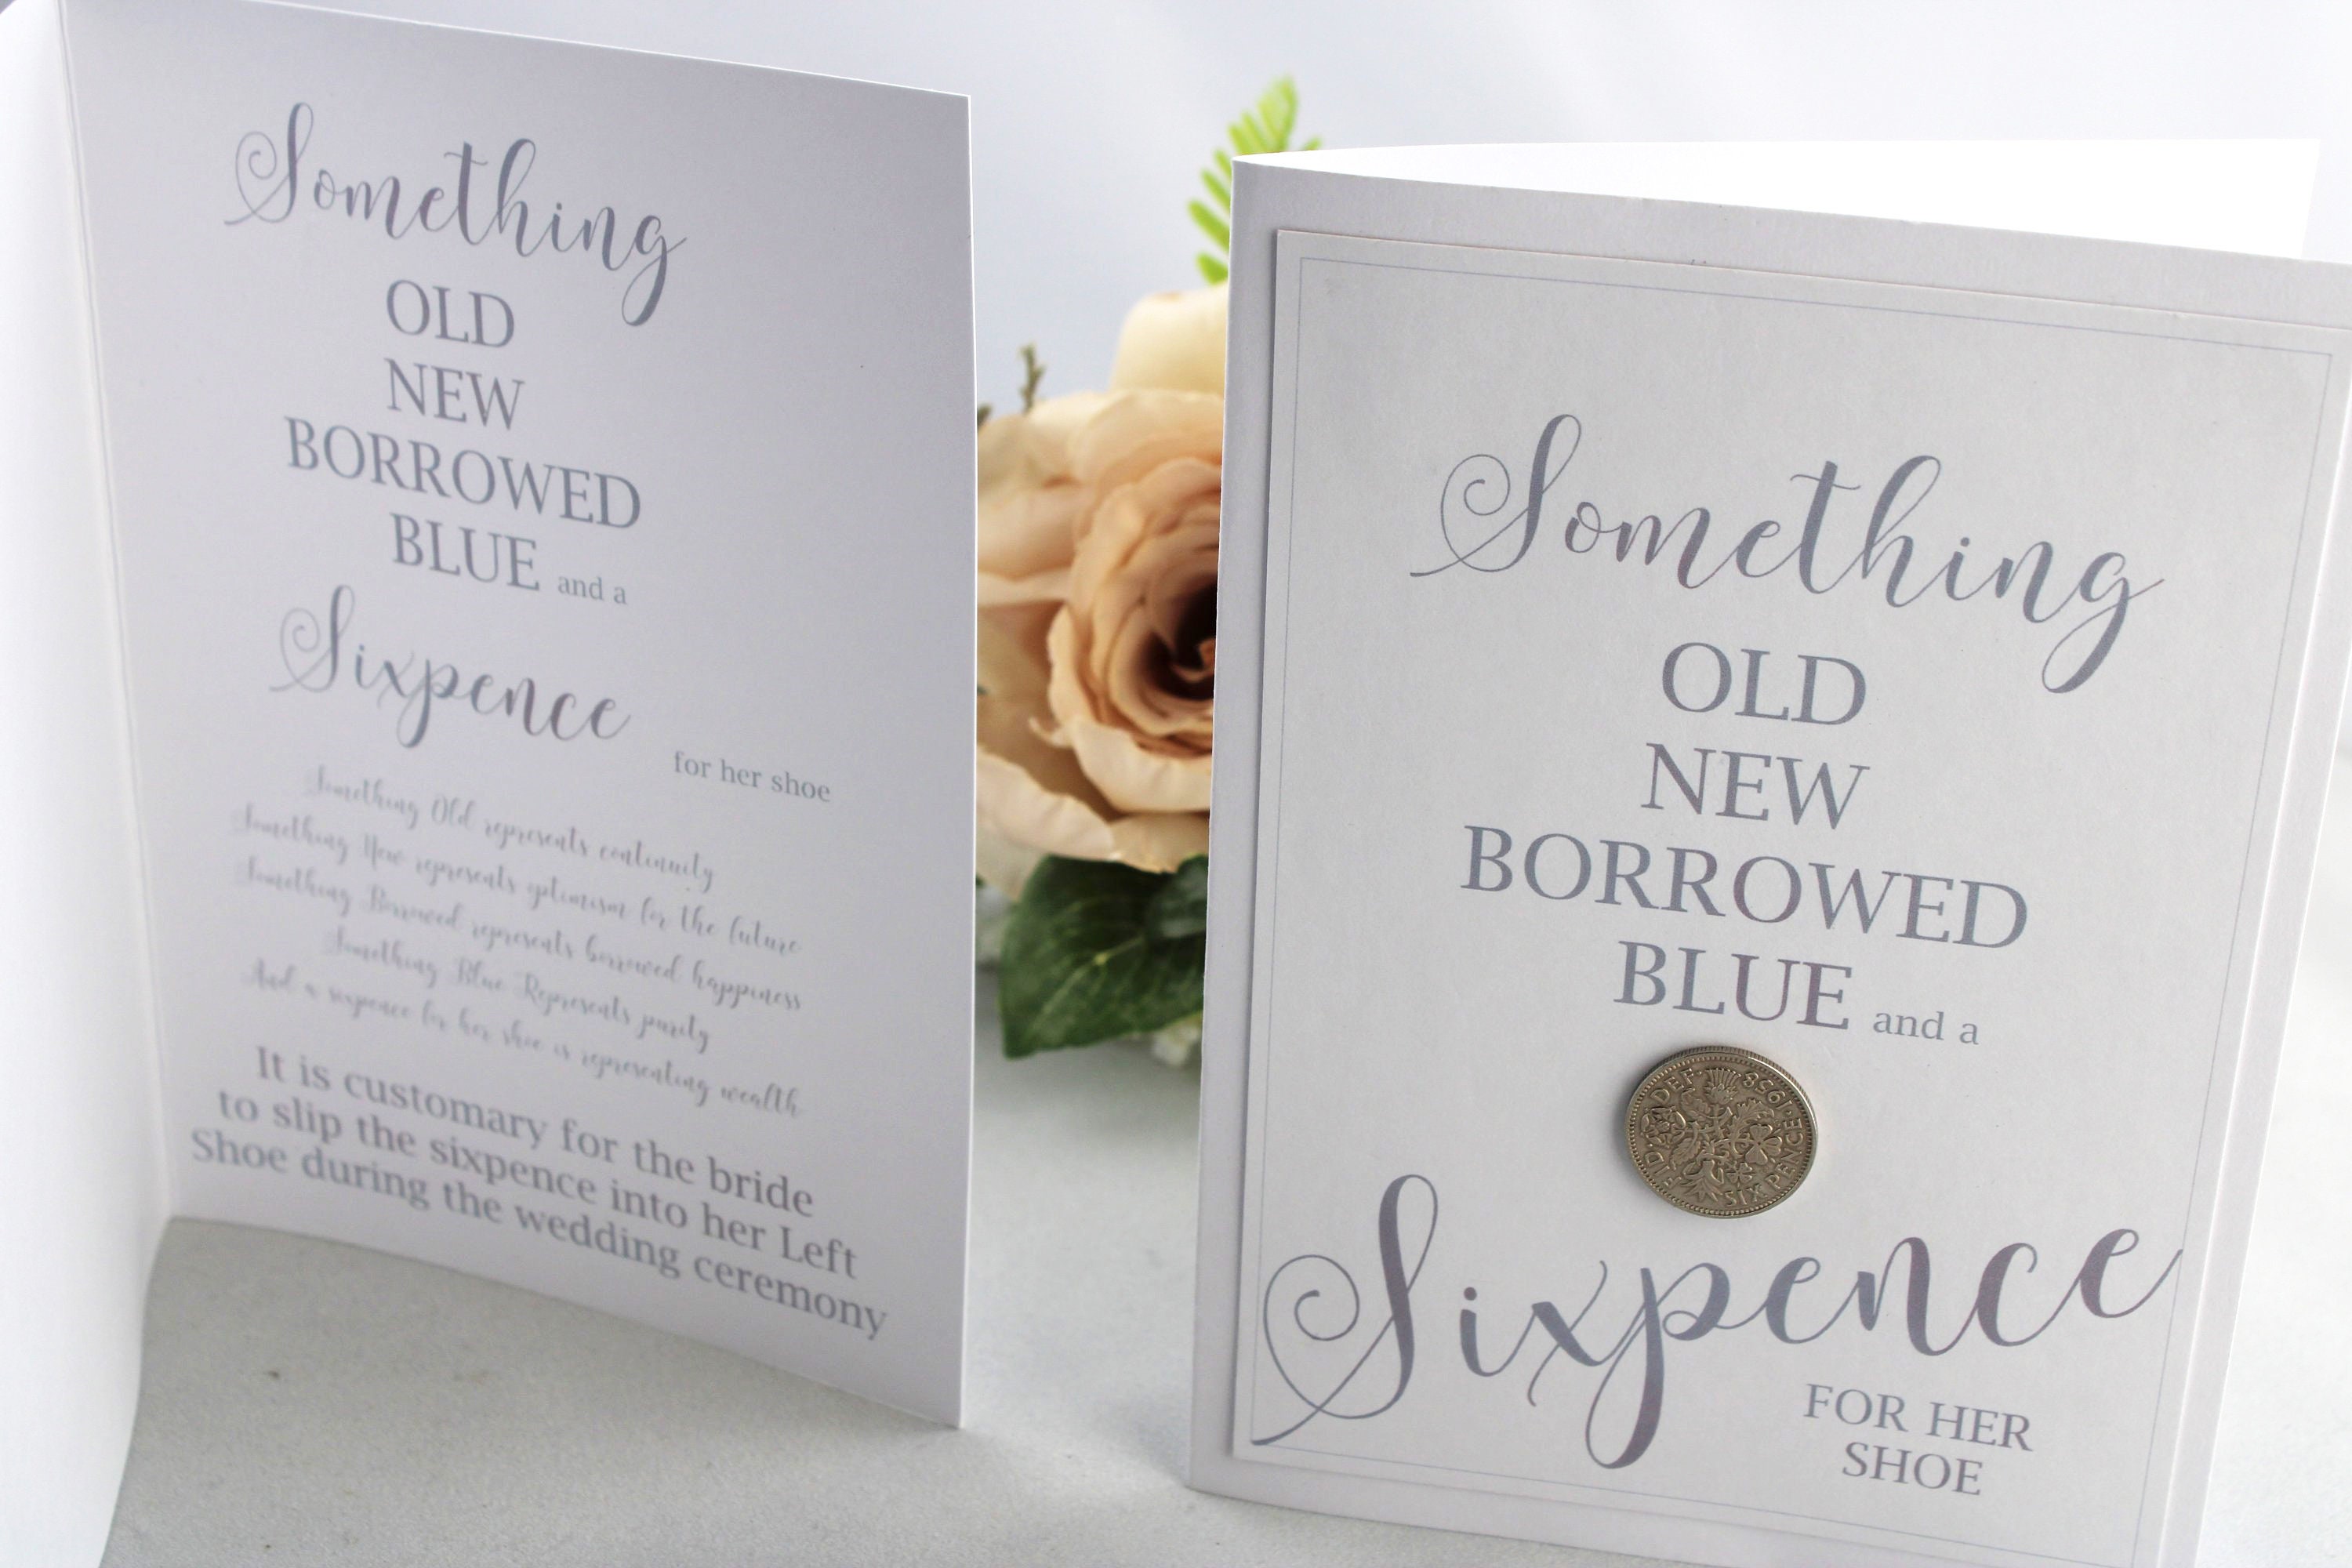 Something
OLD
NEW
BORROWED
BLUE and a
Sixpence
for her shoe
Something Old represents continuity
Something New represents optimism for the future
Something Borrowed represents borrowed happiness
Something Blue Represents purity
And a sixpence for her shoe is representing wealth
It is customary for the bride
to slip the sixpence into her Left
Shoe during the wedding ceremony
Something
OLD
NEW
BORROWED
BLUE and a
FID DEF 1958
SIX PENCE
Sixpence
FOR HER
SHOE